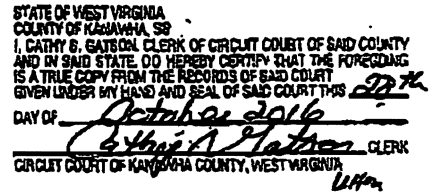 STATE OF WEST VIRGINIA
COUNTY OF KANAWHA, SS
I, CATHY S. GATSON, CLERK OF CIRCUIT COURT OF SAID COUNTY
AND IN SAID STATE, DO HEREBY CERTIFY THAT THE FOREGOING
IS A TRUE COPY FROM THE RECORDS OF SAID COURT
GIVEN UNDER MY HAND AND SEAL OF SAID COURT THIS 28th
DAY OF October 2016
Cathy S Gatson CLERK
CIRCUIT COURT OF KANAWHA COUNTY, WEST VIRGINIA